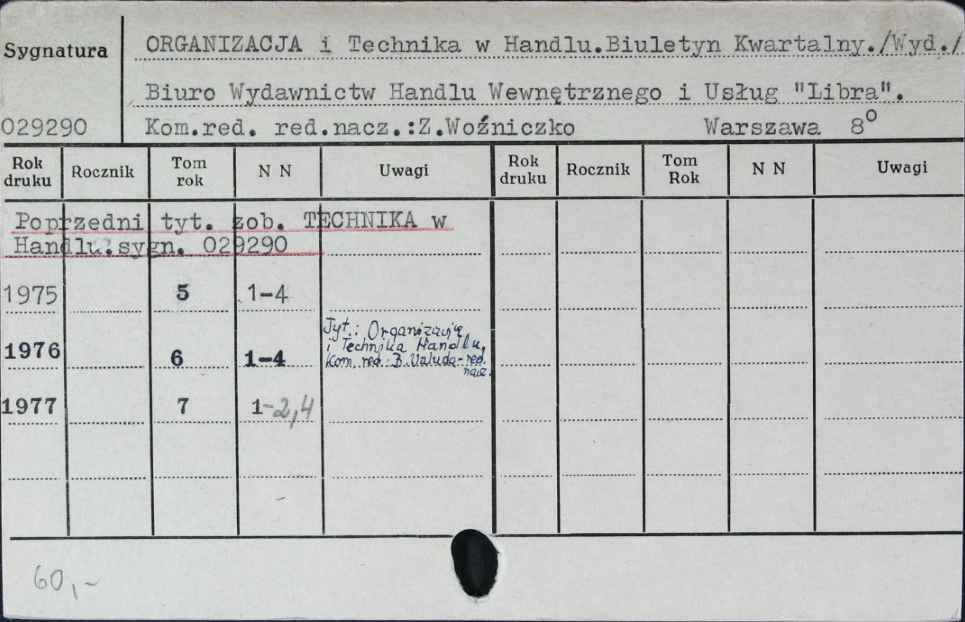 Sygnatura
ORGANIZACJA i Technika w Handlu.Biuletyn Kwartalny./Wyd./
Biuro Wydawnictw Handlu Wewnętrznego i Usług "Libra".
029290 Kom.red. red.nacz.:Z.Woźniczko Warszawa 8°
Rok druku Rocznik Tom rok N N Uwagi Rok druku Rocznik Tom Rok N N Uwagi
Poprzedni tyt. zob. TECHNIKA w
Handlu.sygn. 029290
1975 5 1-4
Tyt.: Organizacja
i Technika Handlu,
1976 6 1-4 Kom. red. B. red.
nacz.
1977 7 1-2,4
60,-